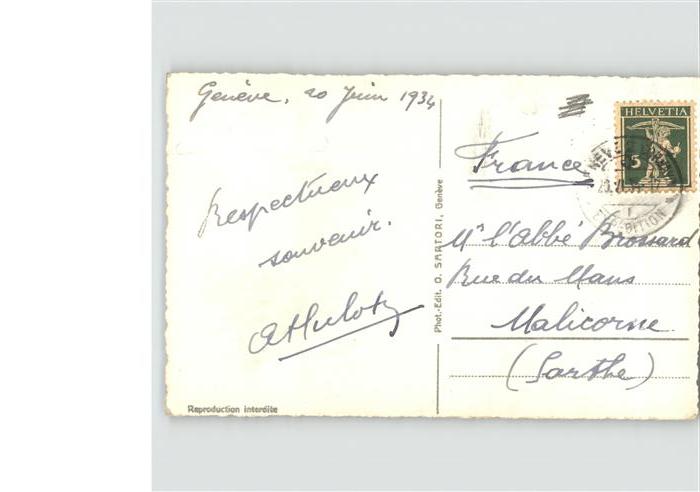 Genève, 20 Juin 1934
Respectueux
souvenir.
AHulot
Reproduction interdite
Phot.-Edit. O. SARTORI, Genève
HELVETIA
5
EXPEDITION
France
Mr l'abbé Brossard
Rue du Mans
Malicorne
(Sarthe)